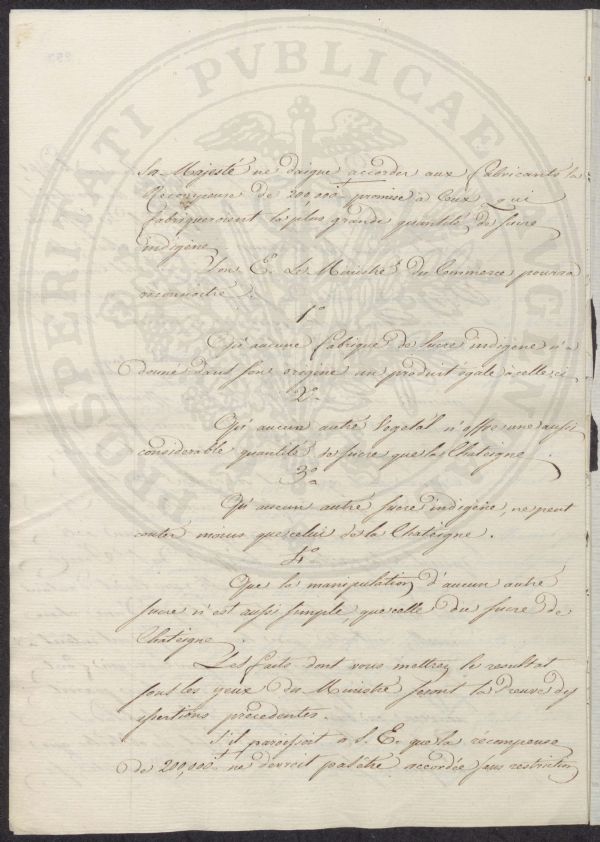 Sa Majesté ne daigne accorder aux fabricants la
Recompense de 200,000 f promise à Ceux qui
fabriqueroient la plus grande quantité de sucre
indigène
Son E. Le Ministre du Commerce pourra
reconnoitre.
1°
Qu'aucune fabrique de sucre indigene n'a
donné dans son origine un produit égale à celle ci
2°
Qu'aucun autre Vegetal n'offre une aussi
considerable quantité de sucre que la Chateigne
3°
Qu'aucun autre sucre indigène, ne peut
couter moins que celui de la Chateigne.
4°
Que la manipulation d'aucun autre
sucre n'est aussi simple, que celle du sucre de
Chateigne
Les faits dont vous mettrez le resultat
sous les yeux du Ministre seront la Preuve des
assertions precedentes.
S'il paroissoit a S. E. que la récompense
de 200,000 f ne devroit pas être accordée sans restriction
PROSPERITATI PVBLICAE AVGENDAE